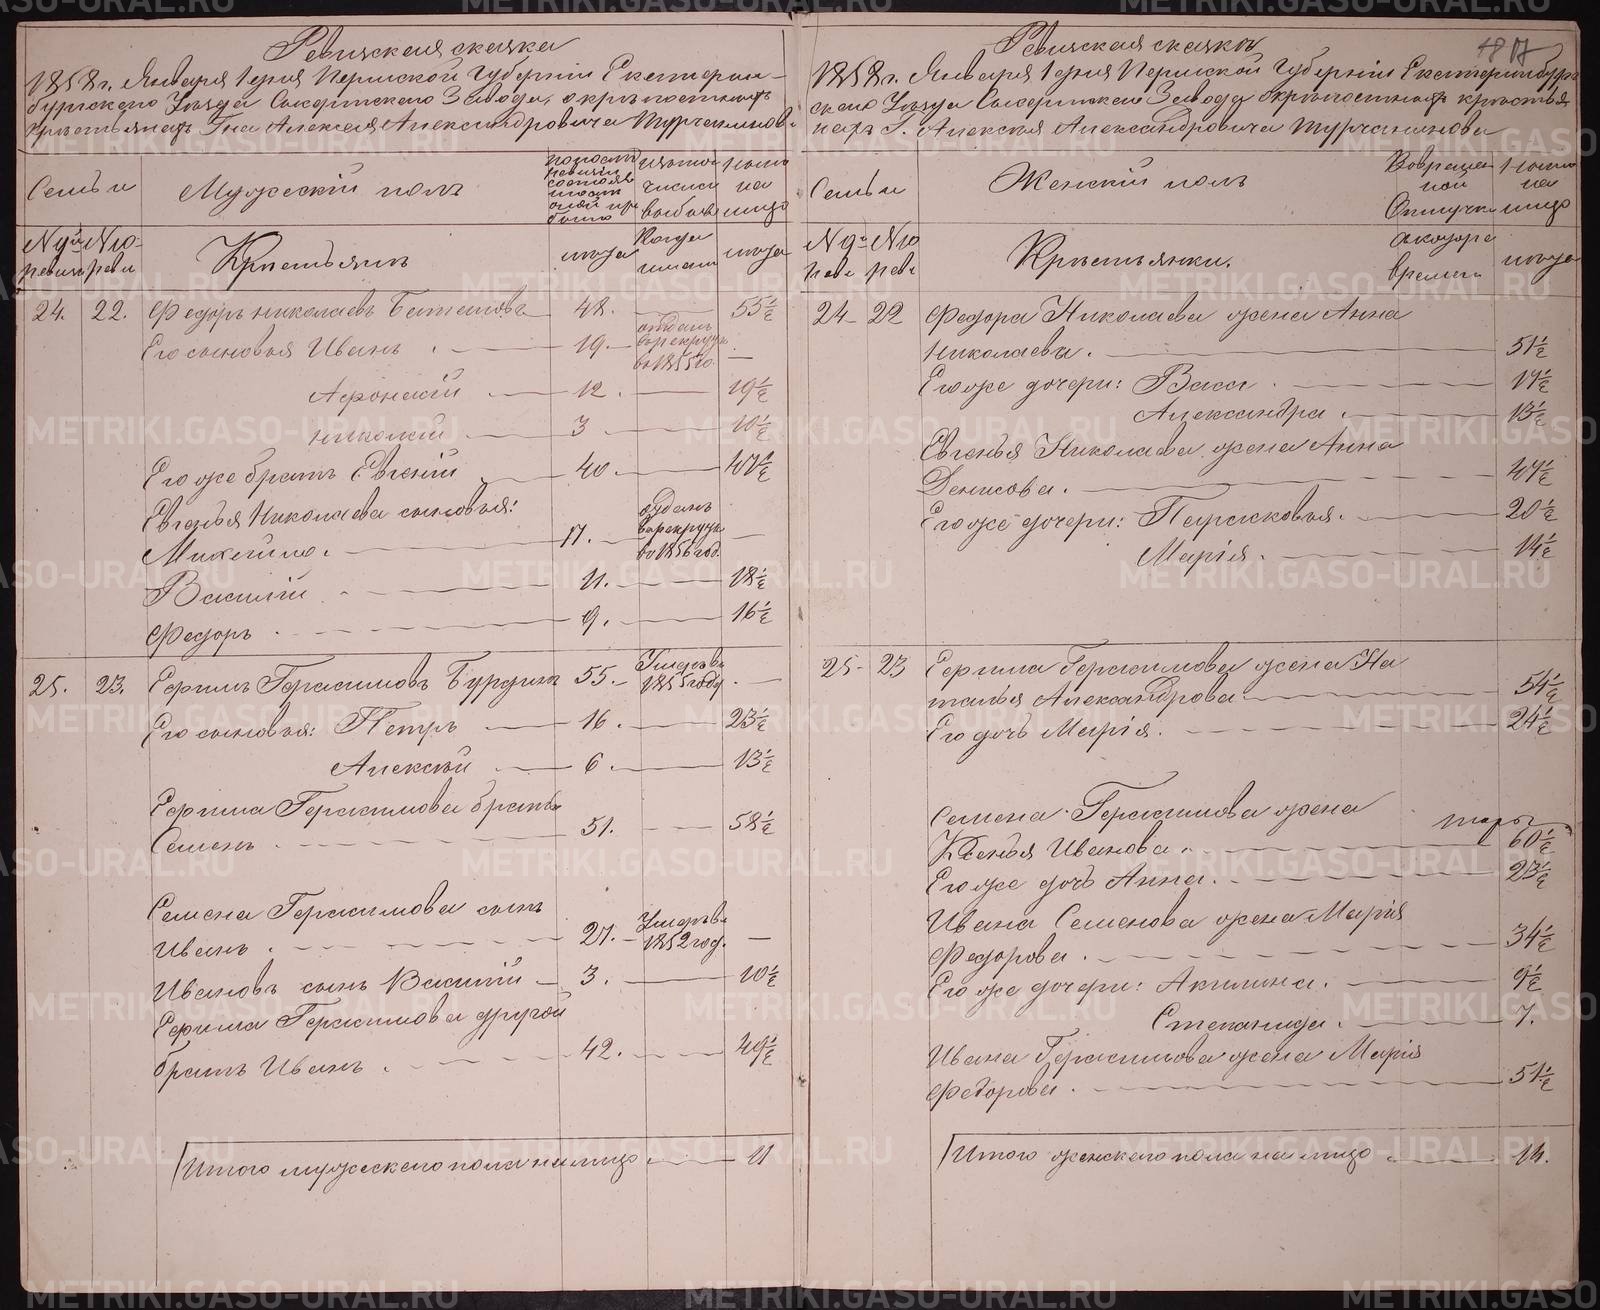 Ревизская сказка
1858 г. Января 1 дня Пермской Губернiи Екатерин-
бургскаго Уезда Сысертскаго Завода, о крепостныхъ
крестьянахъ Гна Алексея Александровича Турчанинова
Семьи
Мужескiй полъ
по последней ревизiи состояло
изъ того числа выбыло
ныне на лицо
№ ревизiи
№ ревизiи
Крестьяне
лета
когда именно
лета
24. 22. Федоръ Николаевъ 48. 55½
Его сыновья Иванъ 19 отданъ в рекруты въ 1855 го. —
Афонасiй 12. 19½
Николай 3 10½
Его же братъ Евгенiй 40. 47½
Евгенья Николаева сыновья:
Михайло. 17. отданъ в рекруты въ 1856 год. —
Василiй 11. 18½
Федоръ 9. 16½
25. 23. Ефимъ Герасимовъ Бурдинъ 55. Умеръ въ 1855 году. —
Его сыновья: Петръ 16. 23½
Алексей 6. 13½
Ефима Герасимова братья
Семенъ 51. 58½
Семена Герасимова сынъ
Иванъ. 27. Умеръ въ 1852 год. —
Ивановъ сынъ Василiй 3. 10½
Ефима Герасимова другой
братъ Иванъ. 42. 49½
Итого мужескаго пола на лицо 11
Ревизская сказка
17
1858 г. Января 1 дня Пермской Губернiи Екатеринбург
скаго Уезда Сысертскаго Завода о крепостныхъ крестья
нахъ Г. Алексея Александровича Турчанинова
Семьи
Женскiй полъ
Во временной отлучке
ныне на лицо
№ реви
№ реви
Крестьянки.
с котораго времени
лета
24 22 Федора Николаева жена Анна
Николаева. 51½
Его же дочери: Васса 17½
Александра. 13½
Евгенья Николаева жена Анна
Денисова. 47½
Его же дочери: Парасковья. 20½
Марiя. 14½
25 23 Ефима Герасимова жена На
талья Александрова 54½
Его дочь Марiя. 24½
Семена Герасимова жена
Ксенья Иванова. 60½
Его же дочь Анна. 23½
Ивана Семенова жена Марiя
Федорова. 34½
Его же дочери: Акилина. 9½
Степанида. 7.
Ивана Герасимова жена Марiя
Федорова. 51½
Итого женскаго пола на лицо 14.
METRIKI.GASO-URAL.RU